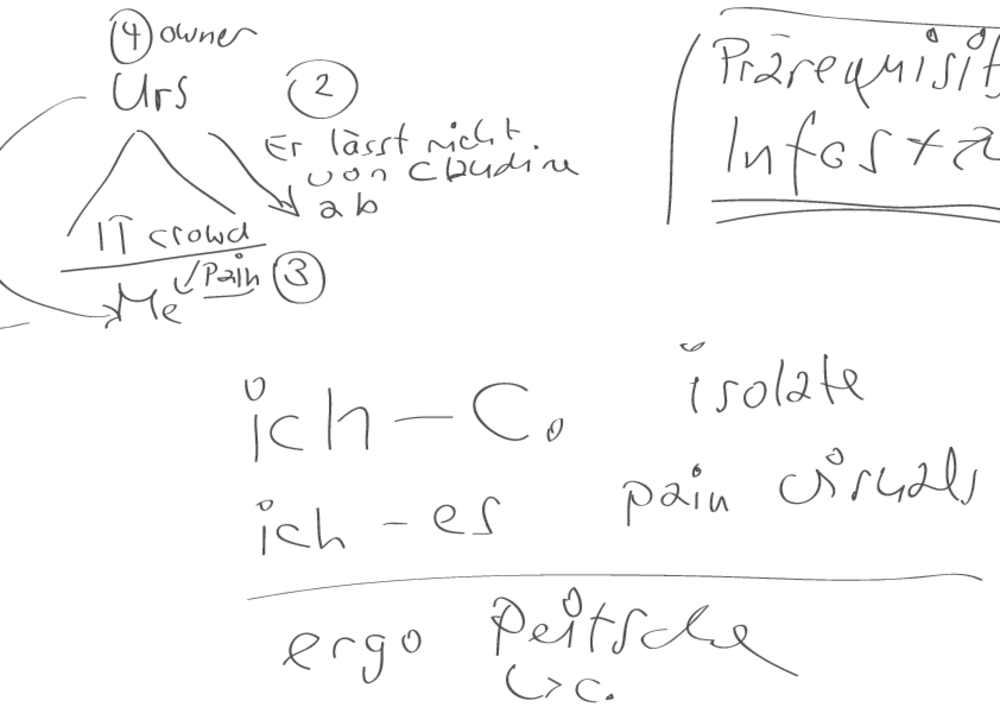 ④ owner
Urs
②
Er lässt nicht
von Claudine
ab
IT crowd
Pain ③
Me
Prärequisit
Infos + a
ich – C.
isolate
ich – es
pain visuals
ergo Peitsche
↳ c.